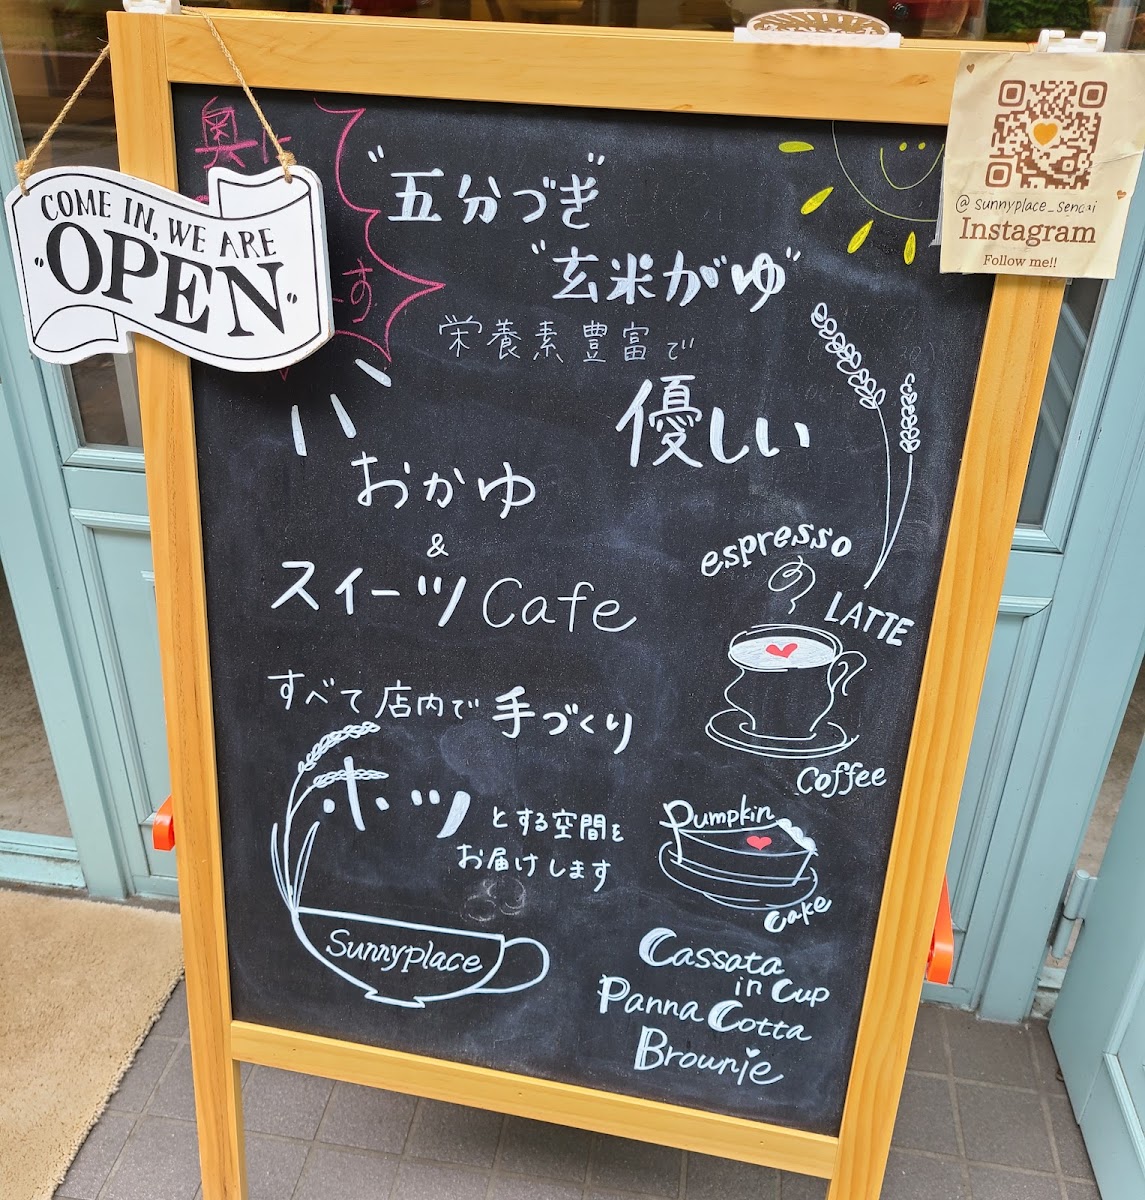 COME IN, WE ARE
OPEN
奥に
す。
"五分づき"
"玄米がゆ"
栄養素豊富で
優しい
おかゆ
&
スイーツ Cafe
すべて店内で手づくり
ホッとする空間を
お届けします
Sunnyplace
@sunnyplace_sendai
Instagram
Follow me!!
espresso
LATTE
Coffee
Pumpkin
Cake
Cassata
in Cup
Panna Cotta
Brownie